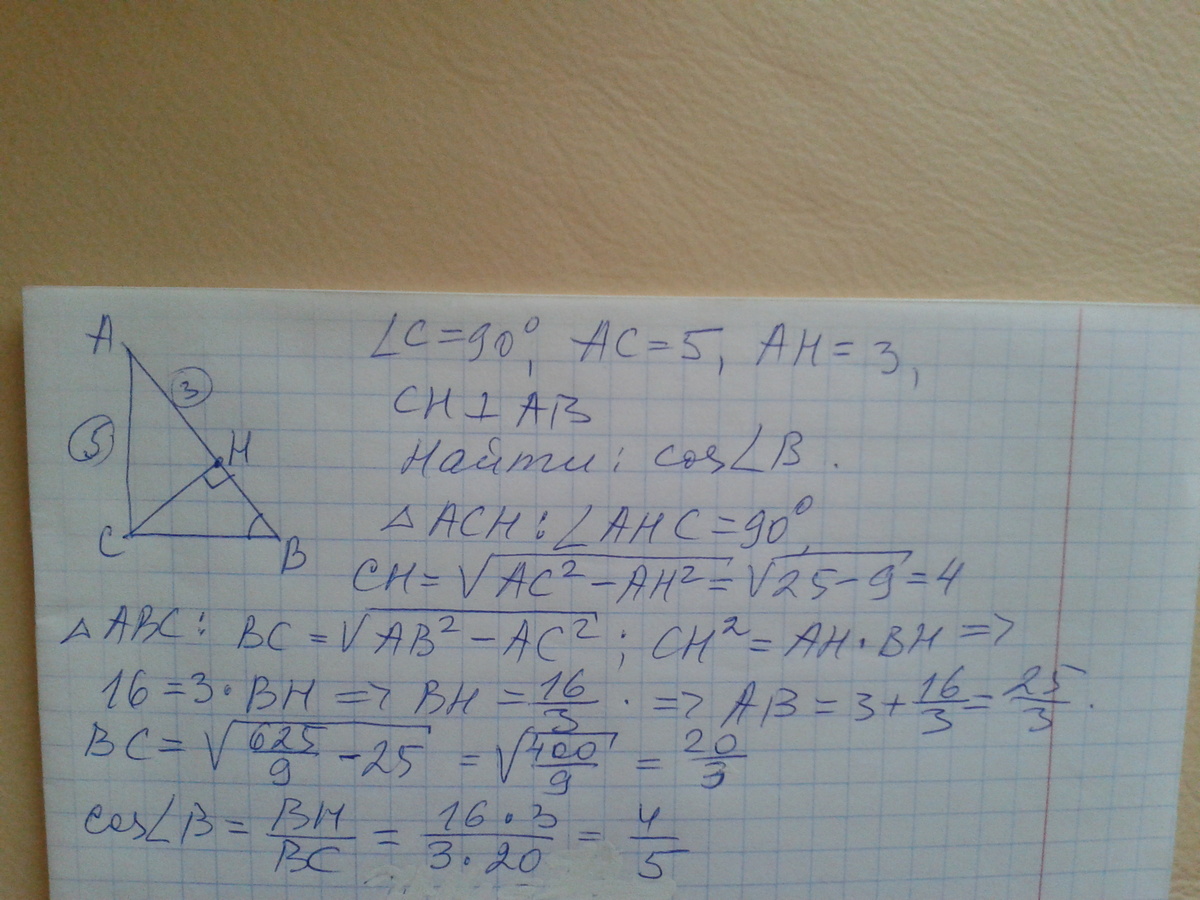 A
3
5
H
C
B
∠C=90°, AC=5, AH=3,
CH⊥AB
Найти: cos∠B.
△ACH: ∠AHC=90°,
CH=√(AC²-AH²)=√(25-9)=4
△ABC: BC=√(AB²-AC²); CH²=AH·BH =>
16=3·BH => BH=16/3. => AB=3+16/3=25/3.
BC=√(625/9-25)=√(400/9)=20/3
cos∠B=BH/BC=16·3/3·20=4/5